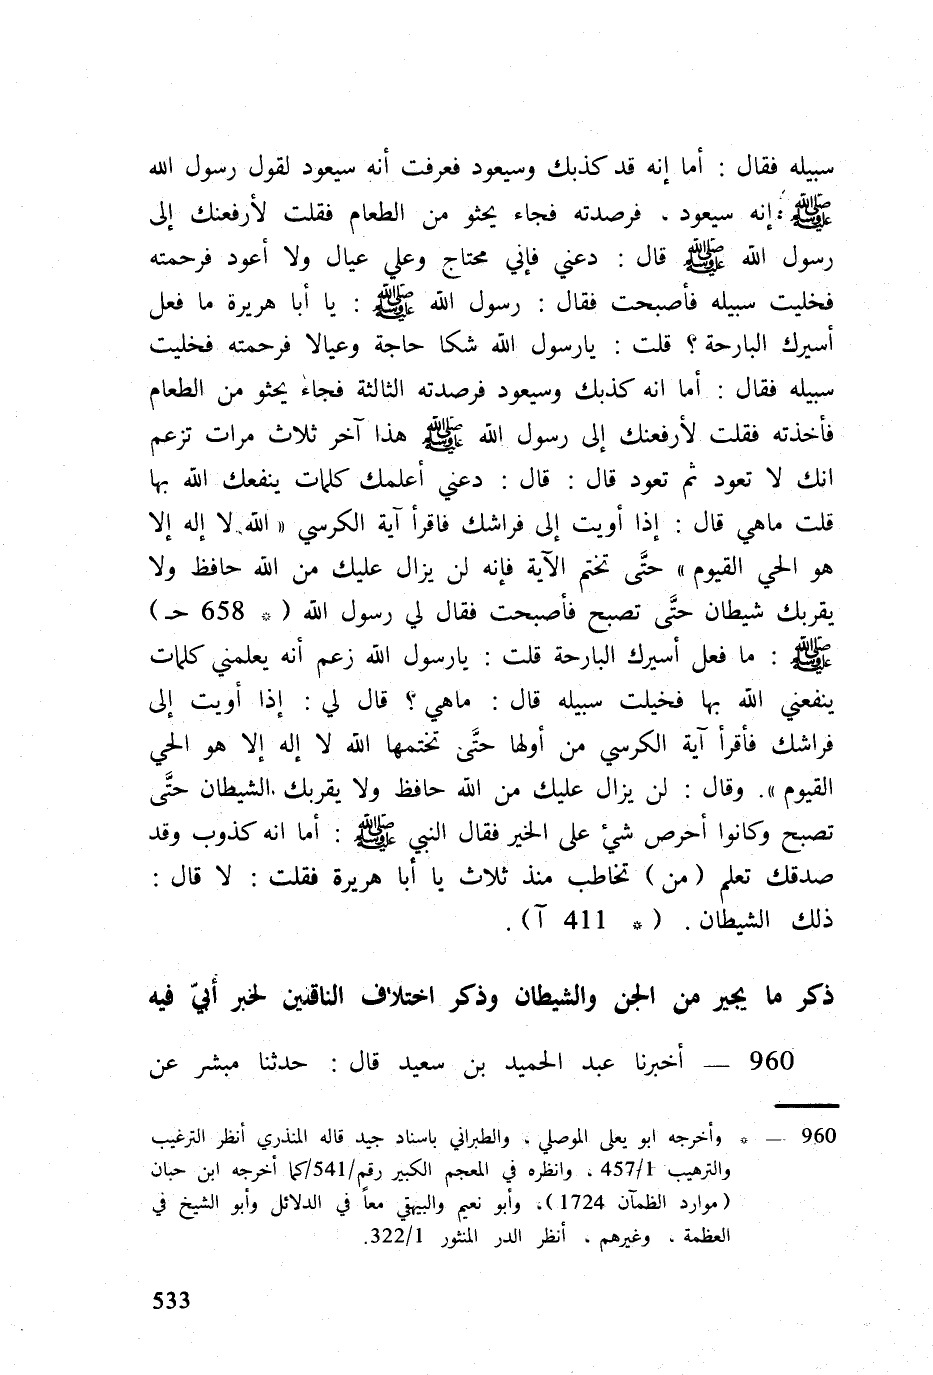 سبيله فقال : أما إنه قد كذبك وسيعود فعرفت أنه سيعود لقول رسول الله
ﷺ : إنه سيعود . فرصدته فجاء يحثو من الطعام فقلت لأرفعنك إلى
رسول الله ﷺ قال : دعني فإني محتاج وعلي عيال ولا أعود فرحمته
فخليت سبيله فأصبحت فقال : رسول الله ﷺ : يا أبا هريرة ما فعل
أسيرك البارحة ؟ قلت : يارسول الله شكا حاجة وعيالا فرحمته فخليت
سبيله فقال : أما انه كذبك وسيعود فرصدته الثالثة فجاء يحثو من الطعام
فأخذته فقلت لأرفعنك إلى رسول الله ﷺ هذا آخر ثلاث مرات تزعم
انك لا تعود ثم تعود قال : قال : دعني أعلمك كلمات ينفعك الله بها
قلت ماهي قال : إذا أويت إلى فراشك فاقرأ آية الكرسي « الله لا إله إلا
هو الحي القيوم » حتَّى تختم الآية فإنه لن يزال عليك من الله حافظ ولا
يقربك شيطان حتَّى تصبح فأصبحت فقال لي رسول الله ( * 658 حـ )
ﷺ : ما فعل أسيرك البارحة قلت : يارسول الله زعم أنه يعلمني كلمات
ينفعني الله بها فخيلت سبيله قال : ماهي ؟ قال لي : إذا أويت إلى
فراشك فأقرأ آية الكرسي من أولها حتَّى تختمها الله لا إله إلا هو الحي
القيوم ». وقال : لن يزال عليك من الله حافظ ولا يقربك الشيطان حتَّى
تصبح وكانوا أحرص شيء على الخير فقال النبي ﷺ : أما انه كذوب وقد
صدقك تعلم ( من ) تخاطب منذ ثلاث يا أبا هريرة فقلت : لا قال :
ذلك الشيطان . ( * 411 آ ) .
ذكر ما يجير من الجن والشيطان وذكر اختلاف الناقلين لخبر أُبيّ فيه
960 — أخبرنا عبد الحميد بن سعيد قال : حدثنا مبشر عن
960 — * وأخرجه ابو يعلى الموصلي ، والطبراني باسناد جيد قاله المنذري أنظر الترغيب
والترهيب 457/1 ، وانظره في المعجم الكبير رقم/541/كما أخرجه ابن حبان
( موارد الظمآن 1724 )، وأبو نعيم والبيهقي معاً في الدلائل وأبو الشيخ في
العظمة . وغيرهم . أنظر الدر المنثور 322/1.
533